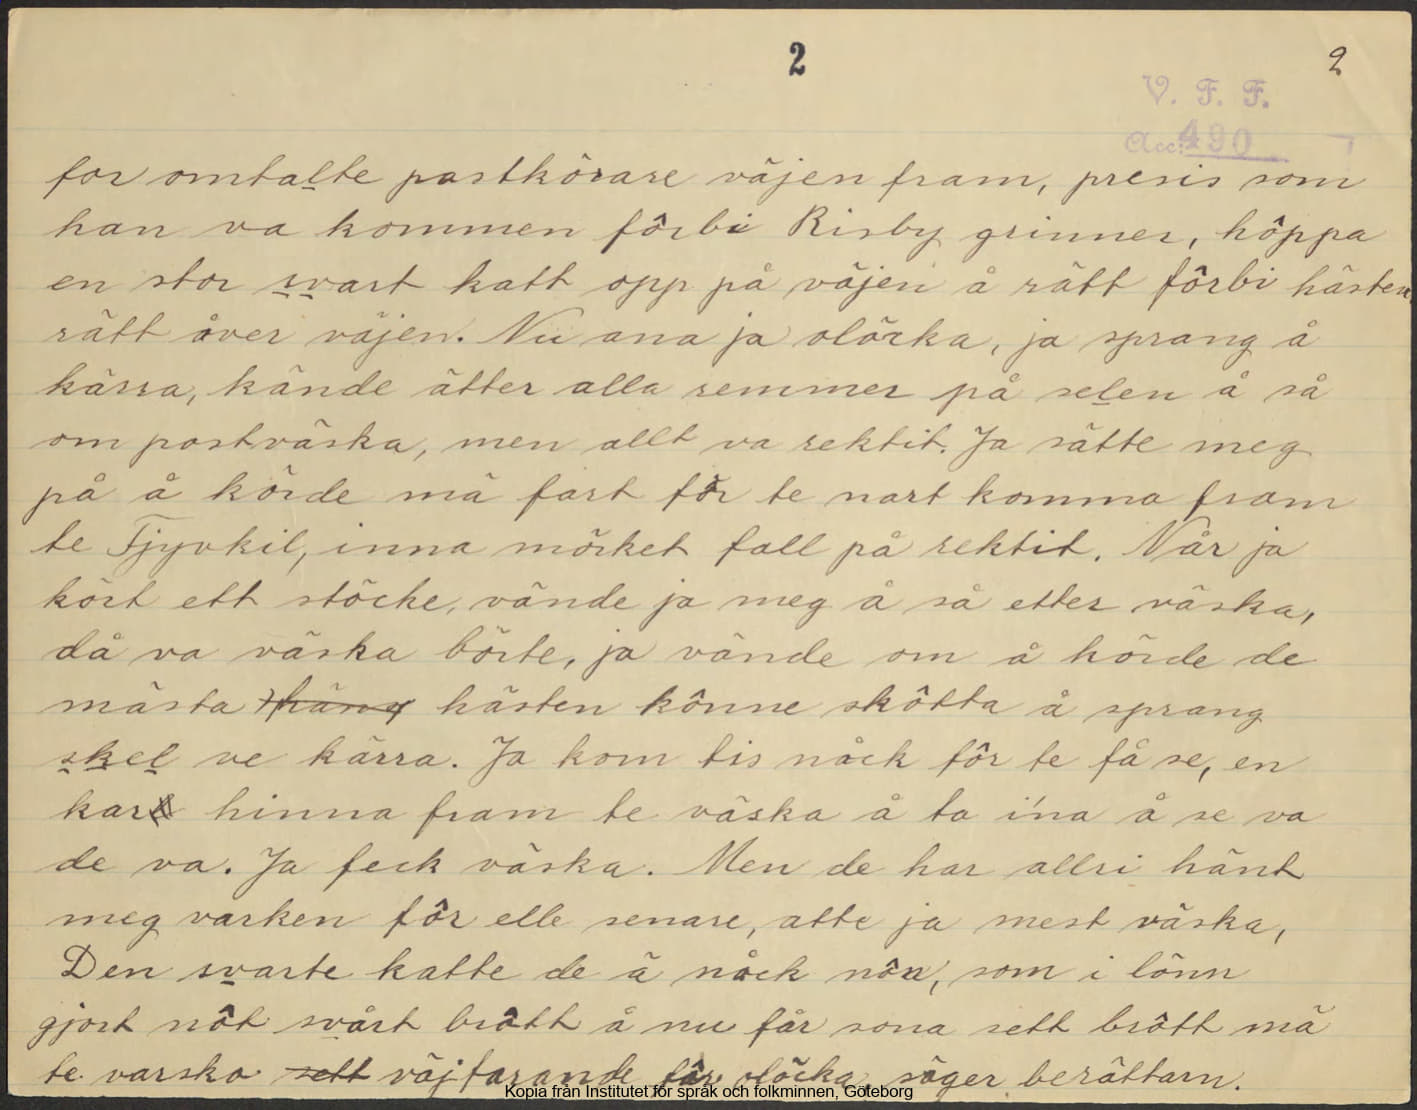 2
2
V. F. F.
Acc: 490
for omtalte pastkörare väjen fram, presis som
han va kommen fôrbi Risby grinner, hôppa
en stor svart katt opp på väjen å rätt fôrbi hästen
rätt över väjen. Nu ana ja olöcka, ja sprang å
kärra, kände ätter alla remmer på selen å så
om postväska, men allt va rektit. Ja sätte meg
på å körde mä fart fôr te nart komma fram
te Tjyvkil, inna mörket fall på rektit. Når ja
kört ett stöcke, vände ja meg å så etter väska,
då va väska börte, ja vände om å körde de
mästa hästen kônne skôtta å sprang
skel ve kärra. Ja kom tis nåck fôr te få se, en
kar hinna fram te väska å ta i'na å se va
de va. Ja feck väska. Men de har allri hänt
meg varken fôr elle senare, atte ja mest väska,
Den svarte katte de ä nåck nôn, som i lönn
gjort nôt svårt brôtt å nu får sona sett brôtt mä
te varsko sett väjfarande fôr olöcka säger berättarn.
Kopia från Institutet för språk och folkminnen, Göteborg